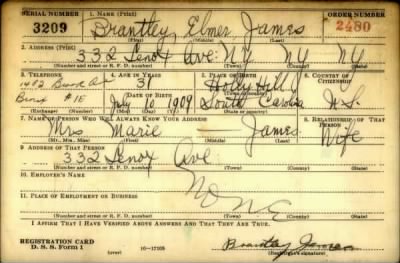 SERIAL NUMBER 1. NAME (Print) ORDER NUMBER
3209 Brantley Elmer James 2480
(First) (Middle) (Last)
2. ADDRESS (Print)
332 Lenox Ave. N.Y. N.Y.
(Number and street or R. F. D. number) (Town) (County) (State)
3. TELEPHONE 4. AGE IN YEARS 5. PLACE OF BIRTH 6. COUNTRY OF CITIZENSHIP
31 Holly Hill
DATE OF BIRTH (Town or county)
Bronx July 10 1909 South Carolina U.S.
(Exchange) (Number) (Mo.) (Day) (Yr.) (State or country)
7. NAME OF PERSON WHO WILL ALWAYS KNOW YOUR ADDRESS 8. RELATIONSHIP OF THAT PERSON
Mrs Marie James Wife
(Mr., Mrs., Miss) (First) (Middle) (Last)
9. ADDRESS OF THAT PERSON
332 Lenox Ave
(Number and street or R. F. D. number) (Town) (County) (State)
10. EMPLOYER'S NAME
NONE
11. PLACE OF EMPLOYMENT OR BUSINESS
(Number and street or R. F. D. number) (Town) (County) (State)
I AFFIRM THAT I HAVE VERIFIED ABOVE ANSWERS AND THAT THEY ARE TRUE.
REGISTRATION CARD
D. S. S. Form 1 (over) 16-17105 Brantley James
(Registrant's signature)